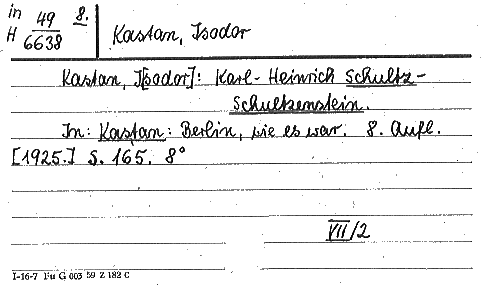 in 49 8.
H 6638
Kastan, Isodor
Kastan, I[sodor]: Karl-Heinrich Schultz-
Schultzenstein.
In: Kastan: Berlin, wie es war. 8. Aufl.
[1925.] S. 165. 8°
VII/2
I-16-7 Fu G 003 59 Z 182 C